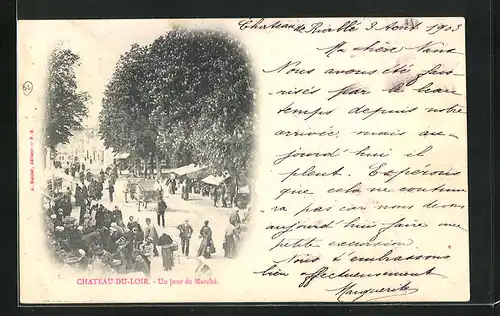 Chateau de Rivallé 3 Août 1903
Ma chère Nana
Nous avons été favo-
risés par le beau
temps depuis notre
arrivée, mais au-
jourd'hui il
pleut. Espérons
que cela ne continue
ra pas car nous devons
aujourd'hui faire une
petite excursion.
Nous t'embrassons
bien affectueusement
Marguerite
CHATEAU-DU-LOIR. - Un jour de Marché.
édit